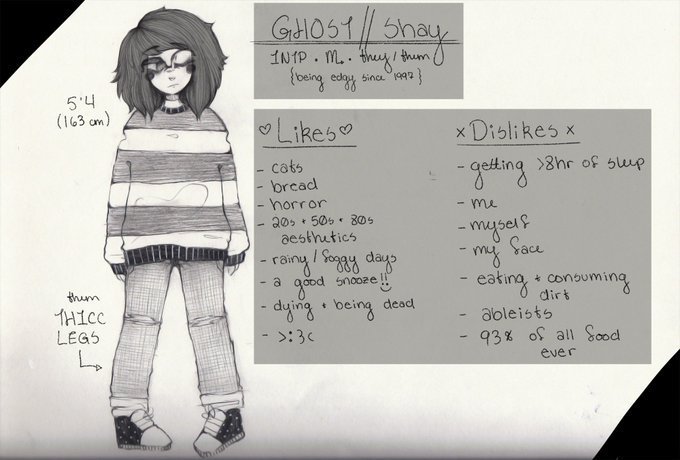 GHOST // Shay
INTP • M. • they/them
{being edgy since 1997}
5'4
(163 cm)
them
THICC
LEGS
♡Likes♡
- cats
- bread
- horror
- 20s + 50s + 80s
aesthetics
- rainy/foggy days
- a good snooze!!
- dying + being dead
- >:3c
x Dislikes x
- getting >8hr of sleep
- me
- myself
- my face
- eating + consuming
dirt
- ableists
- 93% of all food
ever